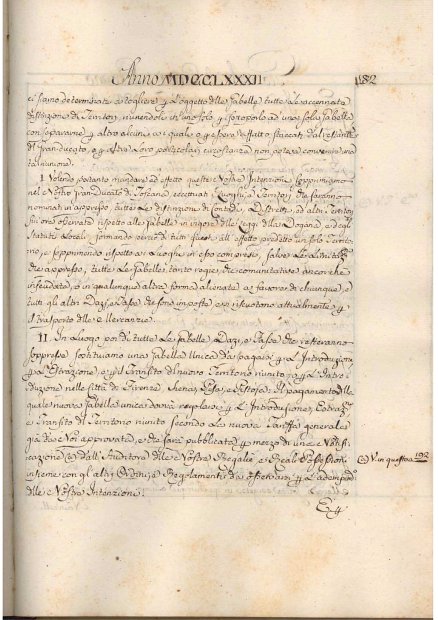 Anno MDCCLXXXII
182
ci siamo determinati a togliere p l'oggetto delle Gabelle tutte le accennate
distinzioni di Territorj, riunendoli in un solo, e sottoporlo ad una sola Gabella
con separarne
Granducato, o p altre loro particolari circostanze non poteva convenire una
tal riunione.
I. Volendo pertanto mandare ad effetto queste Nostre Intenzioni Sopprimiamo
nel Nostro Gran Ducato di Toscana, eccettuati i Luoghi, e Territorj che saranno
nominati in appresso, tutte le distinzioni di Contado, Distretto, ed altri Territorj
fin ora osservate rispetto alle Gabelle in vigore delle Leggi della Dogana, e degli
Statuti Locali, formando perciò di tutti questi all'effetto predetto un solo Territo-
rio, e sopprimendo rispetto ai Luoghi in esso compresi, salve le Limitazioni
che appresso, tutte le Gabelle, tanto regie, che comunitative ancorchè
infeudate, o in qualunque altra forma alienate a favore di chiunque, e
tutti gli altri Dazj, e Tasse che sono imposte, e si riscuotono attualmente p
il trasporto delle Mercanzie.
II. In Luogo poi di tutte le Gabelle, Dazj, e Tasse che resteranno
soppresse sostituiamo una Gabella Unica da pagarsi p l'Introduzione,
p l'Estrazione, e p il Transito del nuovo Territorio riunito, e p l'Intro-
duzione nelle Città di Firenze, Siena, Pisa, e Pistoia: Il pagamento della
quale nuova Gabella unica dovrà regolarsi p l'Introduzione, Estrazione,
e Transito del Territorio riunito secondo la nuova Tariffa generale
già da Noi approvata, e da farsi pubblicare p mezzo di una Notifi-
cazione (a) dall'Auditore delle Nostre Regalie, e Reali Possessioni
insieme con gli altri Ordini, e Regolamenti da osservarsi p l'adempimento
delle Nostre Intenzioni.
(a) V. in questo a 192
E p